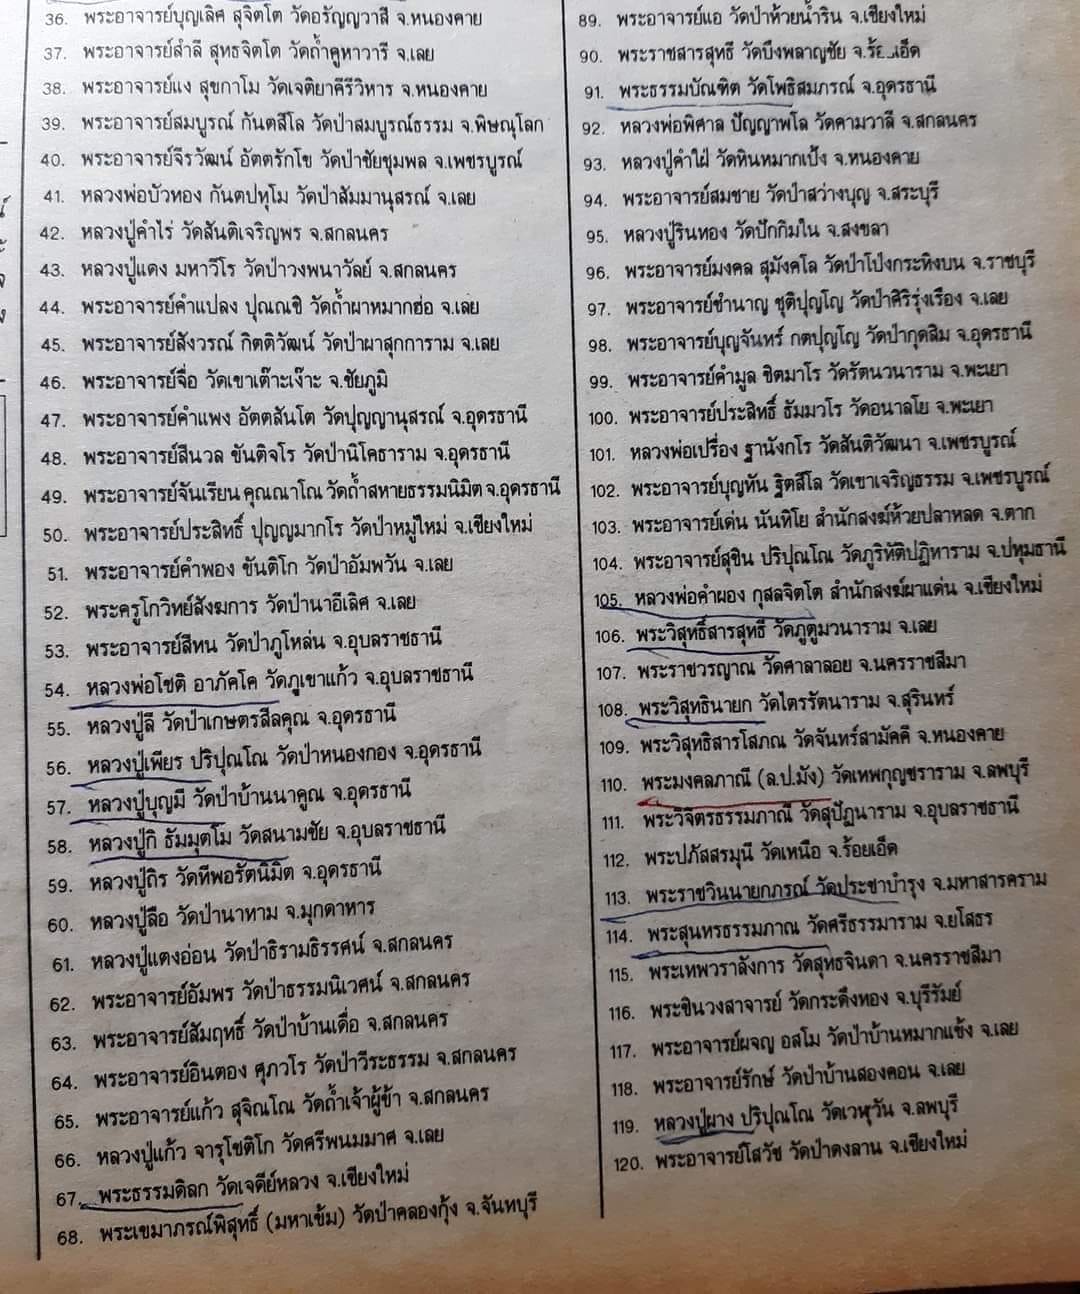 36. พระอาจารย์บุญเลิศ สุจิตโต วัดอรัญญวาสี จ.หนองคาย
37. พระอาจารย์สำลี สุทธจิตโต วัดถ้ำคูหาวารี จ.เลย
38. พระอาจารย์แง สุขกาโม วัดเจติยาคีรีวิหาร จ.หนองคาย
39. พระอาจารย์สมบูรณ์ กันตสีโล วัดป่าสมบูรณ์ธรรม จ.พิษณุโลก
40. พระอาจารย์จีรวัฒน์ อัตตรักโข วัดป่าชัยชุมพล จ.เพชรบูรณ์
41. หลวงพ่อบัวทอง กันตปทุโม วัดป่าสัมมานุสรณ์ จ.เลย
42. หลวงปู่คำไร่ วัดสันติเจริญพร จ.สกลนคร
43. หลวงปู่แดง มหาวีโร วัดป่าวงพนาวัลย์ จ.สกลนคร
44. พระอาจารย์คำแปลง ปุณณชิ วัดถ้ำผาหมากฮ่อ จ.เลย
45. พระอาจารย์สังวรณ์ กิตติวัฒน์ วัดป่าผาสุกการาม จ.เลย
46. พระอาจารย์จื่อ วัดเขาเต๊าะเง๊าะ จ.ชัยภูมิ
47. พระอาจารย์คำแพง อัตตสันโต วัดปุญญานุสรณ์ จ.อุดรธานี
48. พระอาจารย์สีนวล ขันติจโร วัดป่านิโคธาราม จ.อุดรธานี
49. พระอาจารย์จันเรียน คุณณาโณ วัดถ้ำสหายธรรมนิมิต จ.อุดรธานี
50. พระอาจารย์ประสิทธิ์ ปุญญมากโร วัดป่าหมู่ใหม่ จ.เชียงใหม่
51. พระอาจารย์คำพอง ขันติโก วัดป่าอัมพวัน จ.เลย
52. พระครูโกวิทย์สังฆการ วัดป่านาอีเลิศ จ.เลย
53. พระอาจารย์สีทน วัดป่าภูโหล่น จ.อุบลราชธานี
54. หลวงพ่อโชติ อาภัคโค วัดภูเขาแก้ว จ.อุบลราชธานี
55. หลวงปู่ลี วัดป่าเกษตรสีลคุณ จ.อุดรธานี
56. หลวงปู่เพียร ปริปุณโณ วัดป่าหนองกอง จ.อุดรธานี
57. หลวงปู่บุญมี วัดป่าบ้านนาคูณ จ.อุดรธานี
58. หลวงปู่กิ ธัมมุตโม วัดสนามชัย จ.อุบลราชธานี
59. หลวงปู่ถิร วัดทีพอรัตนิมิต จ.อุดรธานี
60. หลวงปู่ลือ วัดป่านาหาม จ.มุกดาหาร
61. หลวงปู่แตงอ่อน วัดป่าธิรามธิรรศน์ จ.สกลนคร
62. พระอาจารย์อัมพร วัดป่าธรรมนิเวศน์ จ.สกลนคร
63. พระอาจารย์สัมฤทธิ์ วัดป่าบ้านเดื่อ จ.สกลนคร
64. พระอาจารย์อินตอง ศุภวโร วัดป่าวีระธรรม จ.สกลนคร
65. พระอาจารย์แก้ว สุจิณโณ วัดถ้ำเจ้าผู้ข้า จ.สกลนคร
66. หลวงปู่แก้ว จารุโชติโก วัดศรีพนมมาศ จ.เลย
67. พระธรรมดิลก วัดเจดีย์หลวง จ.เชียงใหม่
68. พระเขมาภรณ์พิสุทธิ์ (มหาเข้ม) วัดป่าคลองกุ้ง จ.จันทบุรี
89. พระอาจารย์แอ วัดป่าห้วยน้ำริน จ.เชียงใหม่
90. พระราชสารสุทธี วัดบึงพลาญชัย จ.ร้อยเอ็ด
91. พระธรรมบัณฑิต วัดโพธิสมภรณ์ จ.อุดรธานี
92. หลวงพ่อพิศาล ปัญญาพโล วัดคามวาสี จ.สกลนคร
93. หลวงปู่คำใฝ่ วัดหินหมากเป้ง จ.หนองคาย
94. พระอาจารย์สมชาย วัดป่าสว่างบุญ จ.สระบุรี
95. หลวงปู่รินทอง วัดปักกิมใน จ.สงขลา
96. พระอาจารย์มงคล สุมังคโล วัดป่าโป่งกระทิงบน จ.ราชบุรี
97. พระอาจารย์ชำนาญ ชุติปุญโญ วัดป่าศิริรุ่งเรือง จ.เลย
98. พระอาจารย์บุญจันทร์ กตปุญโญ วัดป่ากุดสิม จ.อุดรธานี
99. พระอาจารย์คำมูล ชิตมาโร วัดรัตนวนาราม จ.พะเยา
100. พระอาจารย์ประสิทธิ์ ธัมมวโร วัดอนาลโย จ.พะเยา
101. หลวงพ่อเปรื่อง ฐานังกโร วัดสันติวัฒนา จ.เพชรบูรณ์
102. พระอาจารย์บุญทัน ฐิตสีโล วัดเขาเจริญธรรม จ.เพชรบูรณ์
103. พระอาจารย์เด่น นันทิโย สำนักสงฆ์ห้วยปลาหลด จ.ตาก
104. พระอาจารย์สุชิน ปริปุณโณ วัดภูริทัติปฏิหาราม จ.ปทุมธานี
105. หลวงพ่อคำผอง กุสลจิตโต สำนักสงฆ์ผาแด่น จ.เชียงใหม่
106. พระวิสุทธิ์สารสุทธี วัดภูตูมวนาราม จ.เลย
107. พระราชวรญาณ วัดศาลาลอย จ.นครราชสีมา
108. พระวิสุทธินายก วัดไตรรัตนาราม จ.สุรินทร์
109. พระวิสุทธิสารโสภณ วัดจันทร์สามัคคี จ.หนองคาย
110. พระมงคลภาณี (ล.ป.มัง) วัดเทพกุญชราราม จ.ลพบุรี
111. พระวิจิตรธรรมภาณี วัดสุปัฏนาราม จ.อุบลราชธานี
112. พระปภัสสรมุนี วัดเหนือ จ.ร้อยเอ็ด
113. พระราชวินนายกภรณ์ วัดประชาบำรุง จ.มหาสารคราม
114. พระสุนทรธรรมภาณ วัดศรีธรรมาราม จ.ยโสธร
115. พระเทพวราลังการ วัดสุทธจินดา จ.นครราชสีมา
116. พระชินวงสาจารย์ วัดกระดึงทอง จ.บุรีรัมย์
117. พระอาจารย์ผจญ อสโม วัดป่าบ้านหมากแข้ง จ.เลย
118. พระอาจารย์รักษ์ วัดป่าบ้านสองคอน จ.เลย
119. หลวงปู่ผาง ปริปุณโณ วัดเวฬุวัน จ.ลพบุรี
120. พระอาจารย์โสวัช วัดป่าดงลาน จ.เชียงใหม่